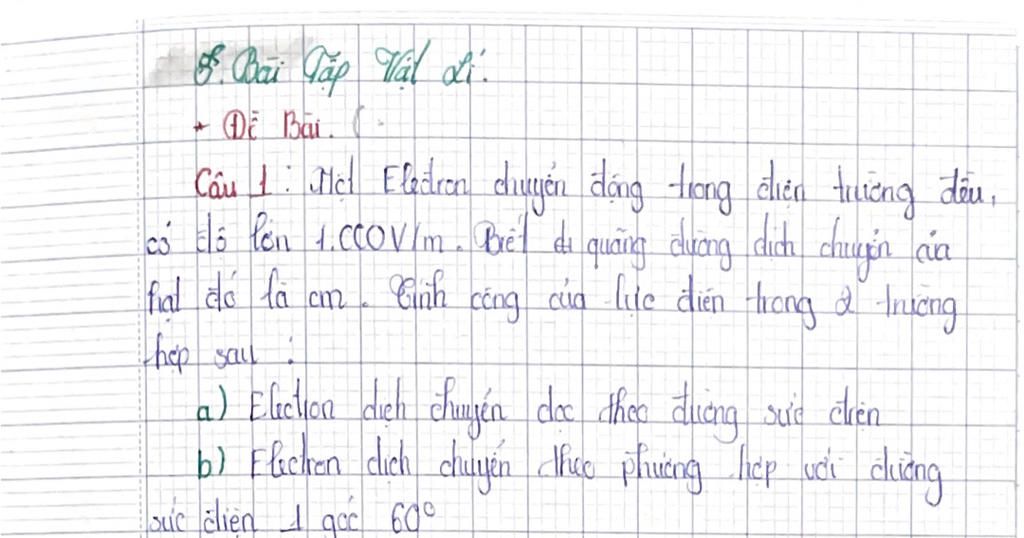 Bài Tập Vật Lí.
* Đề Bài. (
Câu 1 : Một Electron chuyển động trong điện trường đều,
có độ lớn 1.000V/m. Biết đi quãng đường dịch chuyển của
hạt đó là cm. Tính công của lực điện trong 2 trường
hợp sau :
a) Electron dịch chuyển dọc theo đường sức điện
b) Electron dịch chuyển theo phương hợp với đường
sức điện 1 góc 60°